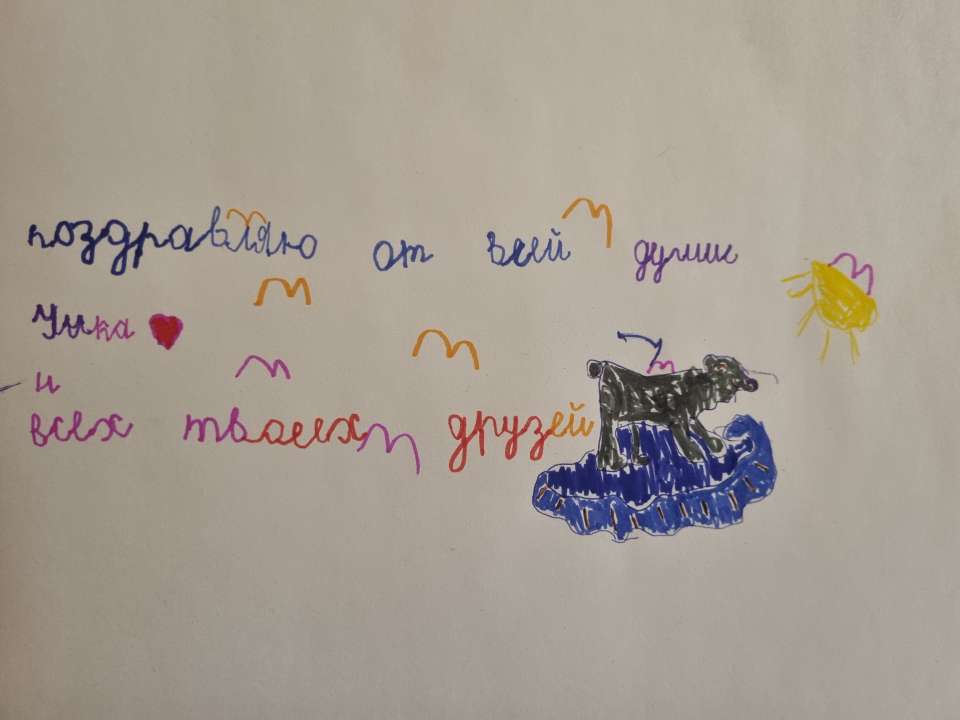 поздравляю от всей души
Умка
и
всех твоих друзей